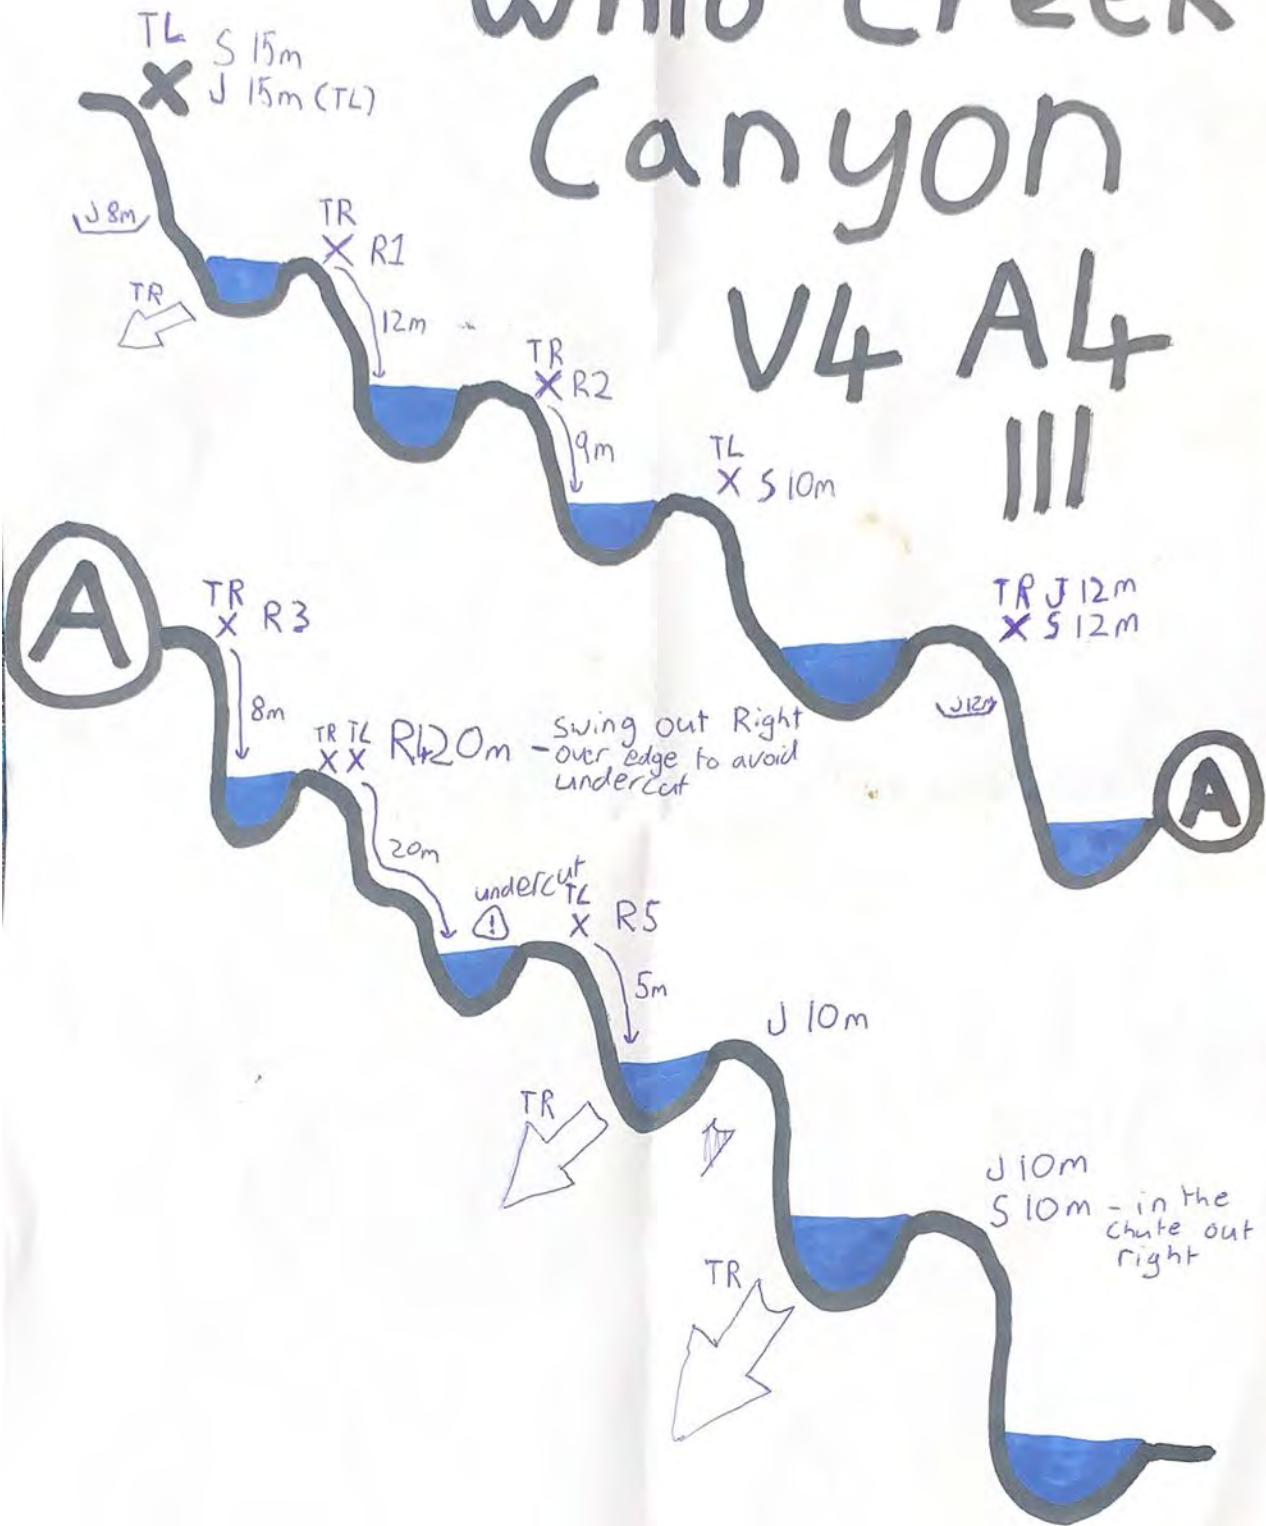 Whio Creek
Canyon
V4 A4
III
TL
X S 15m
J 15m (TL)
J 8m
TR
TR
X R1
12m
TR
X R2
9m
TL
X S 10m
TR J 12m
X S 12m
J12m
A
A
TR
X R3
8m
TR TL
X X R4 20m - Swing out Right
over edge to avoid
undercut
20m
undercut
!
TL
X R5
5m
TR
J 10m
TR
J 10m
S 10m - in the
chute out
right